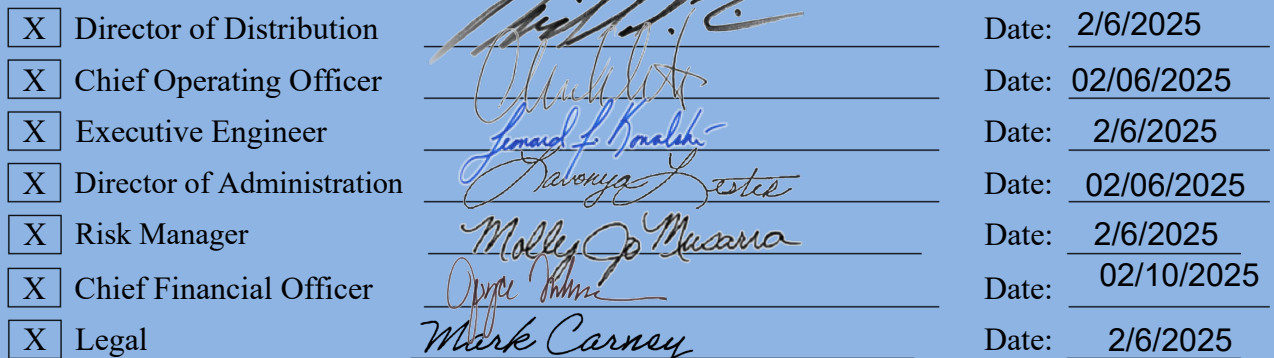 X Director of Distribution Date: 2/6/2025
X Chief Operating Officer Date: 02/06/2025
X Executive Engineer Leonard F. Kowalski Date: 2/6/2025
X Director of Administration Lavonya Lester Date: 02/06/2025
X Risk Manager Molly Jo Musarra Date: 2/6/2025
X Chief Financial Officer Date: 02/10/2025
X Legal Mark Carney Date: 2/6/2025